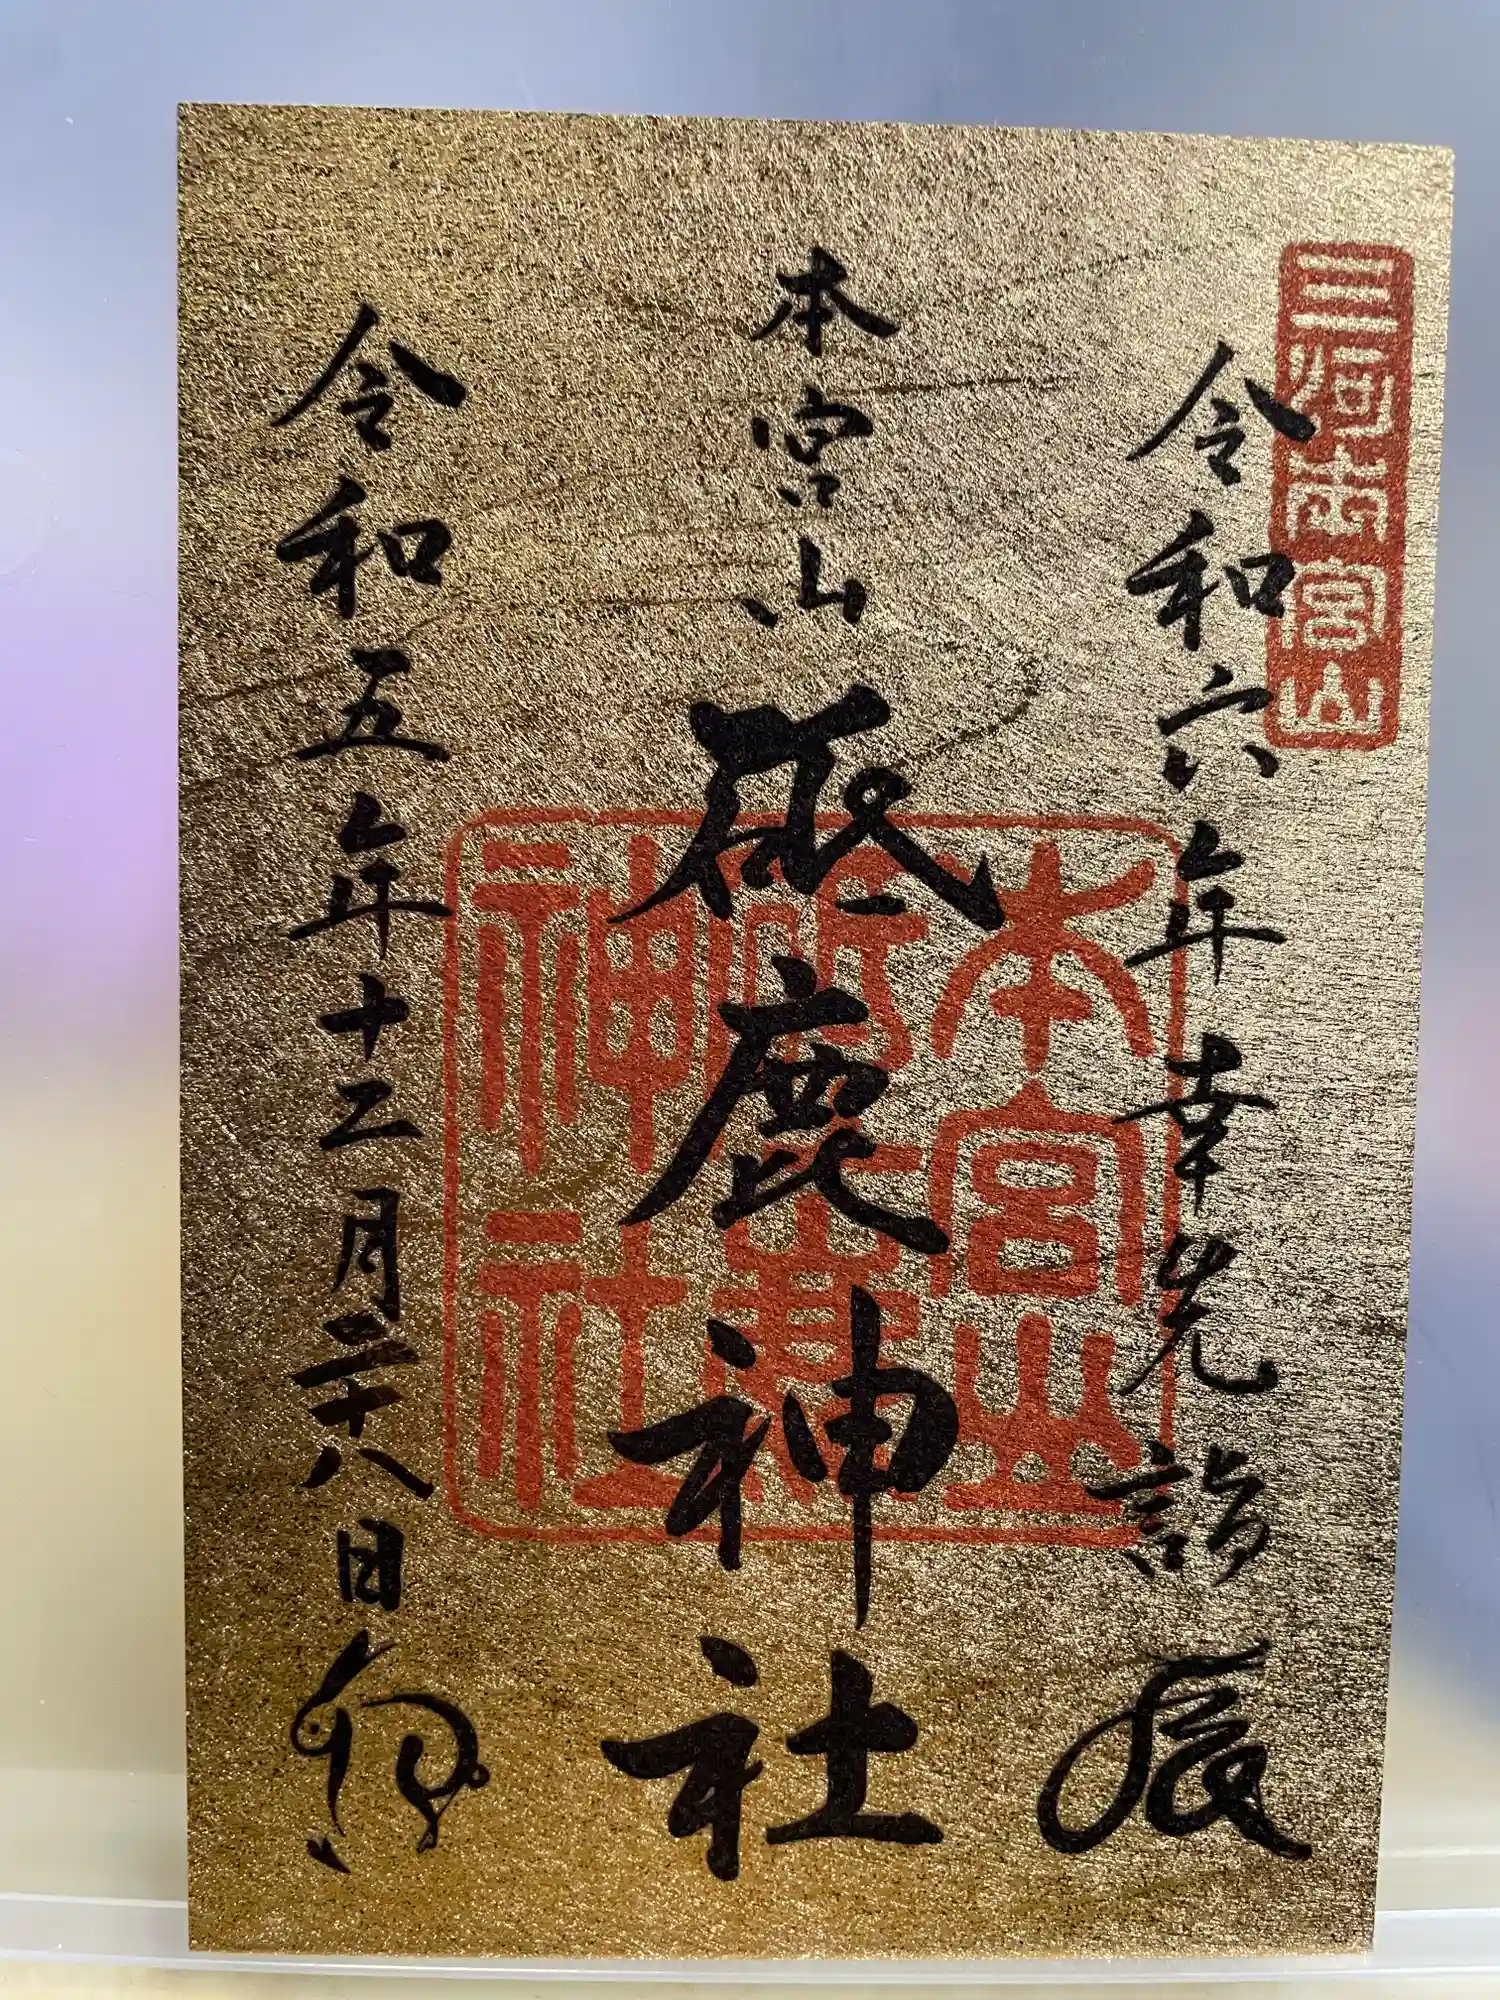 三河本宮山
令和六年 幸先詣 辰
本宮山 砥鹿神社
令和五年十二月二十八日 卯
本宮山
神社